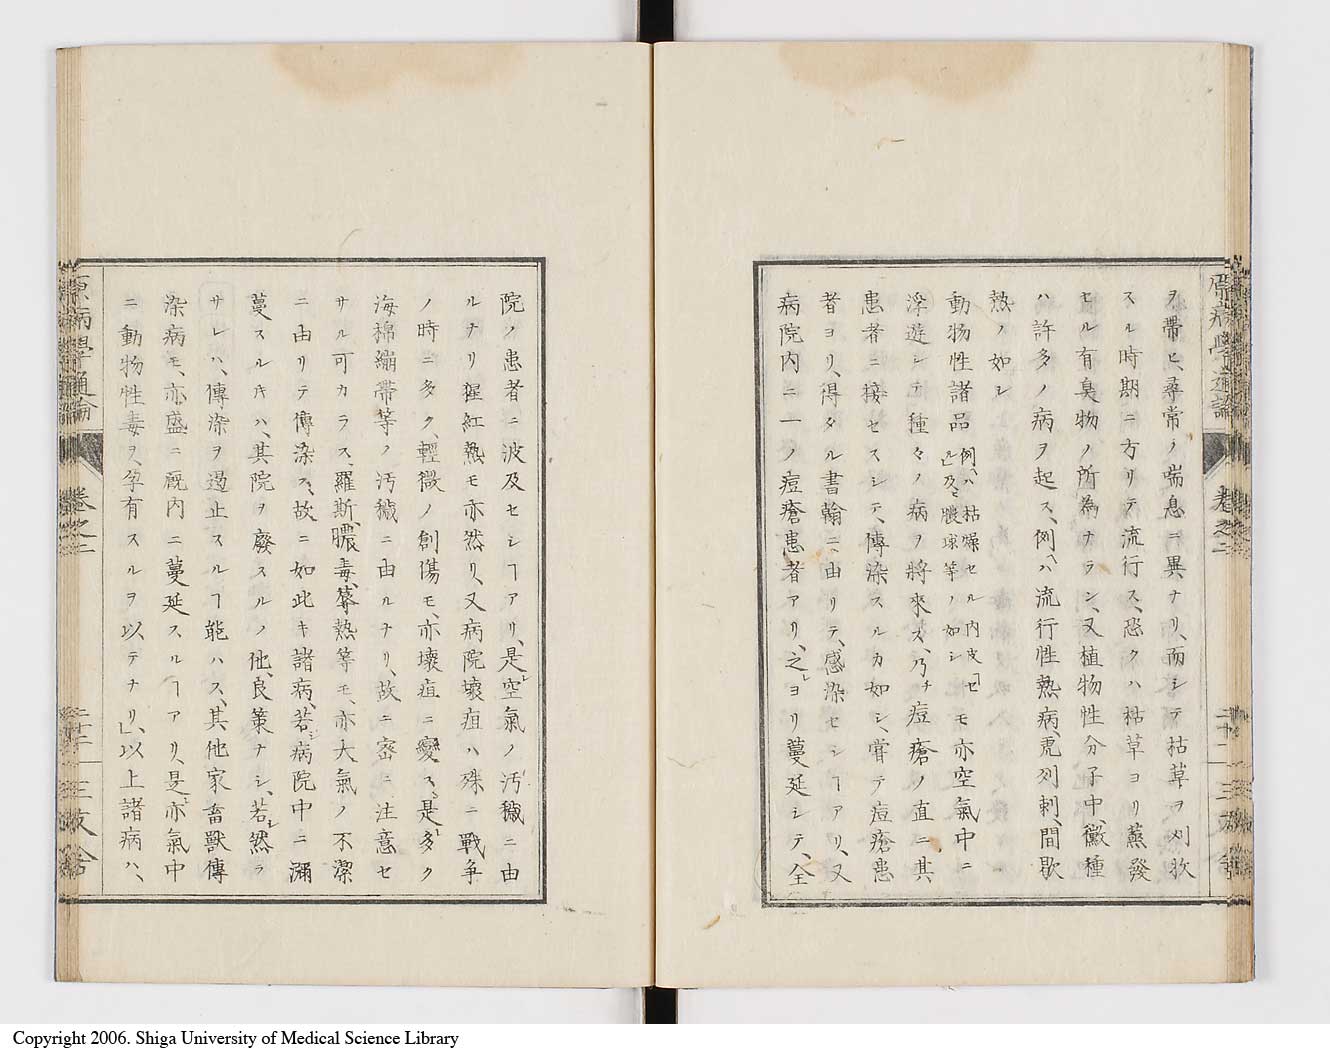 ヲ帶ヒ、尋常ノ喘息ニ異ナリ、而シテ枯草ヲ刈收
スル時期ニ方リテ流行ス、恐クハ枯草ヨリ蒸發
セル有臭物ノ所為ナラン、又植物性分子中、黴種
ハ許多ノ病ヲ起ス、例ハ流行性熱病、虎列剌、間歇
熱ノ如シ
動物性諸品例ハ枯燥セル内皮「セル」及ヒ膿球等ノ如シモ亦空氣中ニ
浮遊シテ種々ノ病ヲ將來ス、乃チ痘瘡ノ直ニ其
患者ニ接セスシテ、傳染スルカ如シ、嘗テ痘瘡患
者ヨリ、得タル書翰ニ由リテ、感染セシヿアリ、又
病院内ニ一ノ痘瘡患者アリ、之レヨリ蔓延シテ、全
原病學通論
卷之二
二十二
三友舍
院ノ患者ニ波及セシヿアリ、是レ空氣ノ汚穢ニ由
ルナリ猩紅熱モ亦然リ、又病院壞疽ハ殊ニ戰爭
ノ時ニ多ク、輕微ノ創傷モ、亦壞疽ニ變ス、是レ多ク
海棉繃帶等ノ汚穢ニ由ルナリ、故ニ密ニ注意セ
サル可カラス、羅斯、膿毒、蓐熱等モ、亦大氣ノ不潔
ニ由リテ傳染ス、故ニ如此キ諸病、若シ病院中ニ瀰
蔓スルキハ、其院ヲ廢スルノ他、良策ナシ、若シ然ラ
サレハ、傳染ヲ遏止スルヿ能ハス、其他家畜獸傳
染病モ、亦盛ニ厩内ニ蔓延スルヿアリ、是レ亦氣中
ニ動物性毒ヲ、孕有スルヲ以テナリ、」以上諸病ハ、
原病學通論
卷之二
二十二
三友舍
Copyright 2006. Shiga University of Medical Science Library